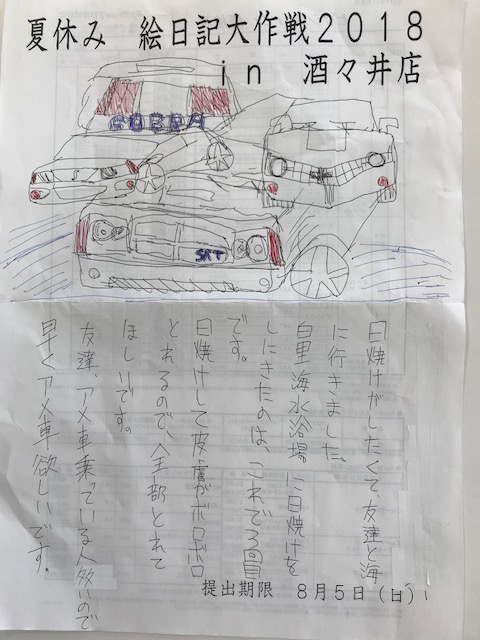 夏休み 絵日記大作戦2018
in 酒々井店
SRT
日焼けがしたくて、友達と海
に行きました。
白里海水浴場に日焼けを
しにきたのは、これで3回目
です。
日焼けして皮膚がボロボロ
とれるので、全部とれて
ほしいです。
友達、アメ車乗っている人多いので
早くアメ車欲しいです。
提出期限 8月5日(日)